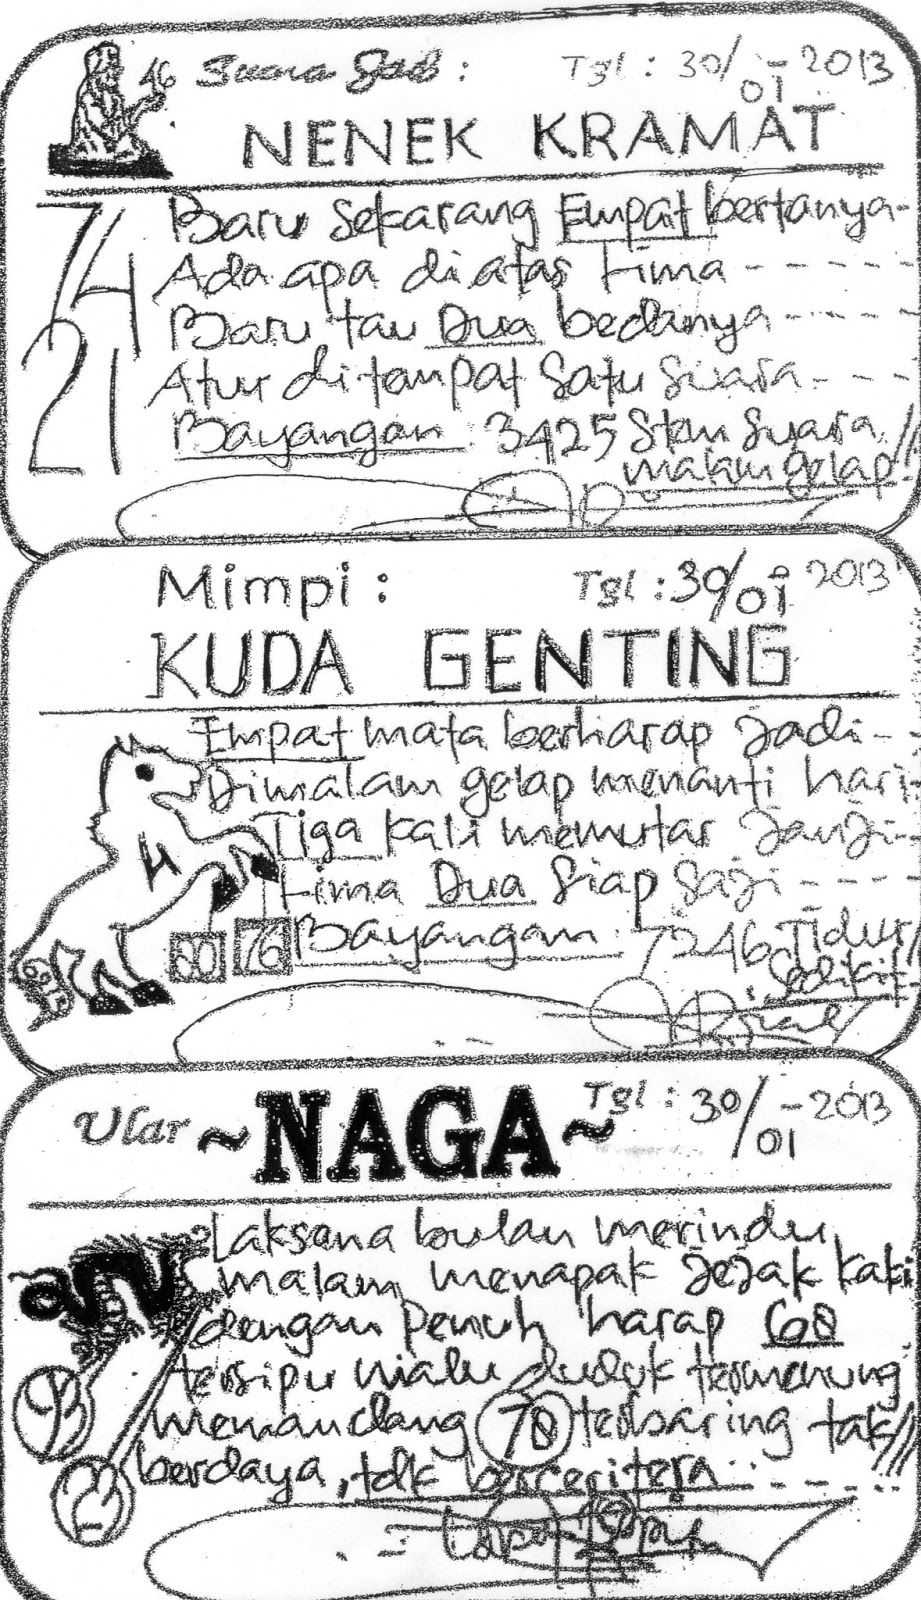 46 Suara Gaib : Tgl : 30/01-2013
NENEK KRAMAT
74 Baru sekarang Empat bertanya-
Ada apa diatas Lima - - - - -
21 Baru tau Dua bedanya - - - -
Atur ditempat satu suara - - -
Bayangan 3425 Stem suara
malam gelap
Mimpi : Tgl : 30/01 2013
KUDA GENTING
Empat mata berharap jadi - -
Dimalam gelap menanti hari -
Tiga kali memutar janji -
Lima Dua siap saji - - - -
Bayangan : 7246 Tidur
76
sedikit
Ular ~NAGA~ Tgl : 30/01-2013
Laksana bulan merindu
malam menapak jejak kaki
dengan penuh harap 68
tersipu malu duduk termenung
memandang 78 terbaring tak
berdaya, tdk berceritera